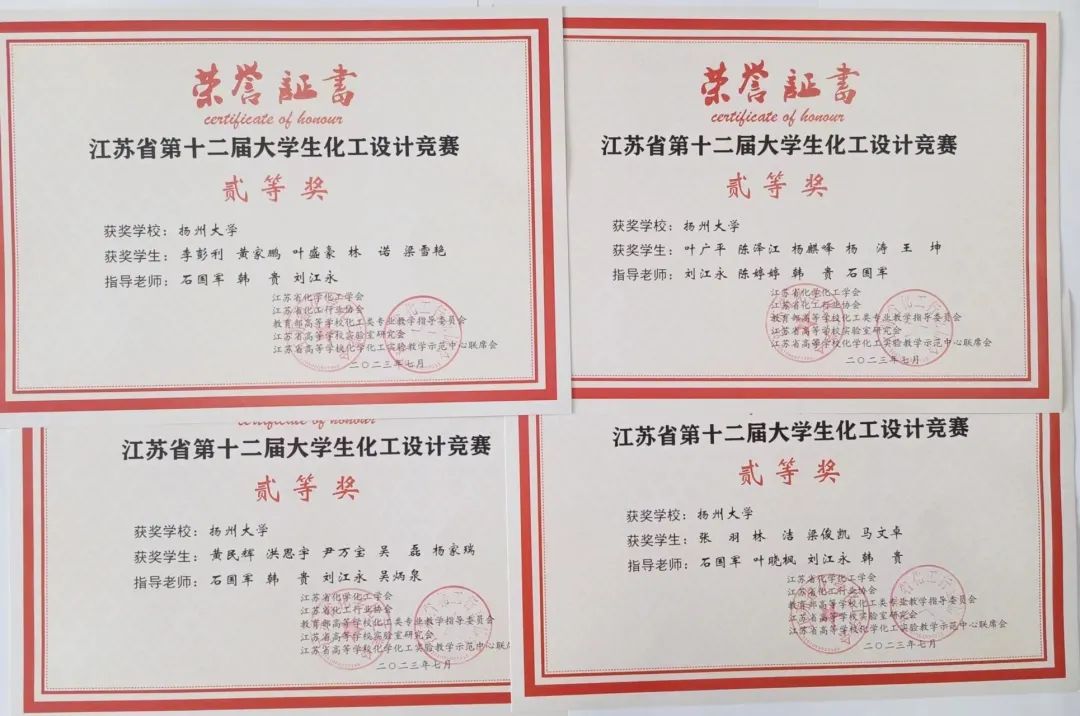 荣誉证书
certificate of honour
江苏省第十二届大学生化工设计竞赛
贰等奖
获奖学校：扬州大学
获奖学生：李彭利 黄家鹏 叶盛豪 林 诺 梁雪艳
指导老师：石国军 韩 贵 刘江永
江苏省化学化工学会
江苏省化工行业协会
教育部高等学校化工类专业教学指导委员会
江苏省高等学校实验室研究会
江苏省高等学校化学化工实验教学示范中心联席会
二〇二三年七月
荣誉证书
certificate of honour
江苏省第十二届大学生化工设计竞赛
贰等奖
获奖学校：扬州大学
获奖学生：叶广平 陈泽江 杨麒峰 杨 涛 王 坤
指导老师：刘江永 陈婷婷 韩 贵 石国军
江苏省化学化工学会
江苏省化工行业协会
教育部高等学校化工类专业教学指导委员会
江苏省高等学校实验室研究会
江苏省高等学校化学化工实验教学示范中心联席会
二〇二三年七月
certificate of honour
江苏省第十二届大学生化工设计竞赛
贰等奖
获奖学校：扬州大学
获奖学生：黄民辉 洪思宇 尹万宝 吴 磊 杨家瑞
指导老师：石国军 韩 贵 刘江永 吴炳泉
江苏省化学化工学会
江苏省化工行业协会
教育部高等学校化工类专业教学指导委员会
江苏省高等学校实验室研究会
江苏省高等学校化学化工实验教学示范中心联
二〇二三年七月
江苏省第十二届大学生化工设计竞赛
贰等奖
获奖学校：扬州大学
获奖学生：张 羽 林 洁 梁俊凯 马文卓
指导老师：石国军 叶晓枫 刘江永 韩 贵
江苏省化学化工学会
江苏省化工行业协会
教育部高等学校化工类专业教学指导委员会
江苏省高等学校实验室研究会
江苏省高等学校化学化工实验教学示范中心联席会
二〇二三年七月